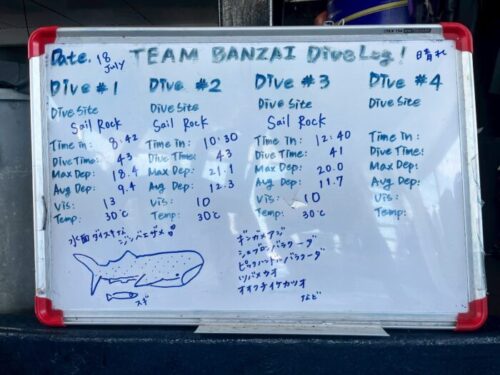 Date. 18 July TEAM BANZAI Dive Log! 晴れ
Dive #1
Dive Site
Sail Rock
Time in: 8:42
Dive Time: 43
Max Dep: 18.4
Avg Dep: 9.4
Vis: 13
Temp: 30℃
ジンベエザメ
スギ
Dive #2
Dive Site
Sail Rock
Time in: 10:30
Dive Time: 43
Max Dep: 21.1
Avg Dep: 12.3
Vis: 10
Temp: 30℃
Dive #3
Dive Site
Sail Rock
Time in: 12:40
Dive Time: 41
Max Dep: 20.0
Avg Dep: 11.7
Vis: 10
Temp: 30℃
ギンガメアジ
シェブロンバラクーダ
ピックハンドルバラクーダ
ツバメウオ
オオクチイケカツオ
など
Dive #4
Dive Site
Time in:
Dive Time:
Max Dep:
Avg Dep:
Vis:
Temp: